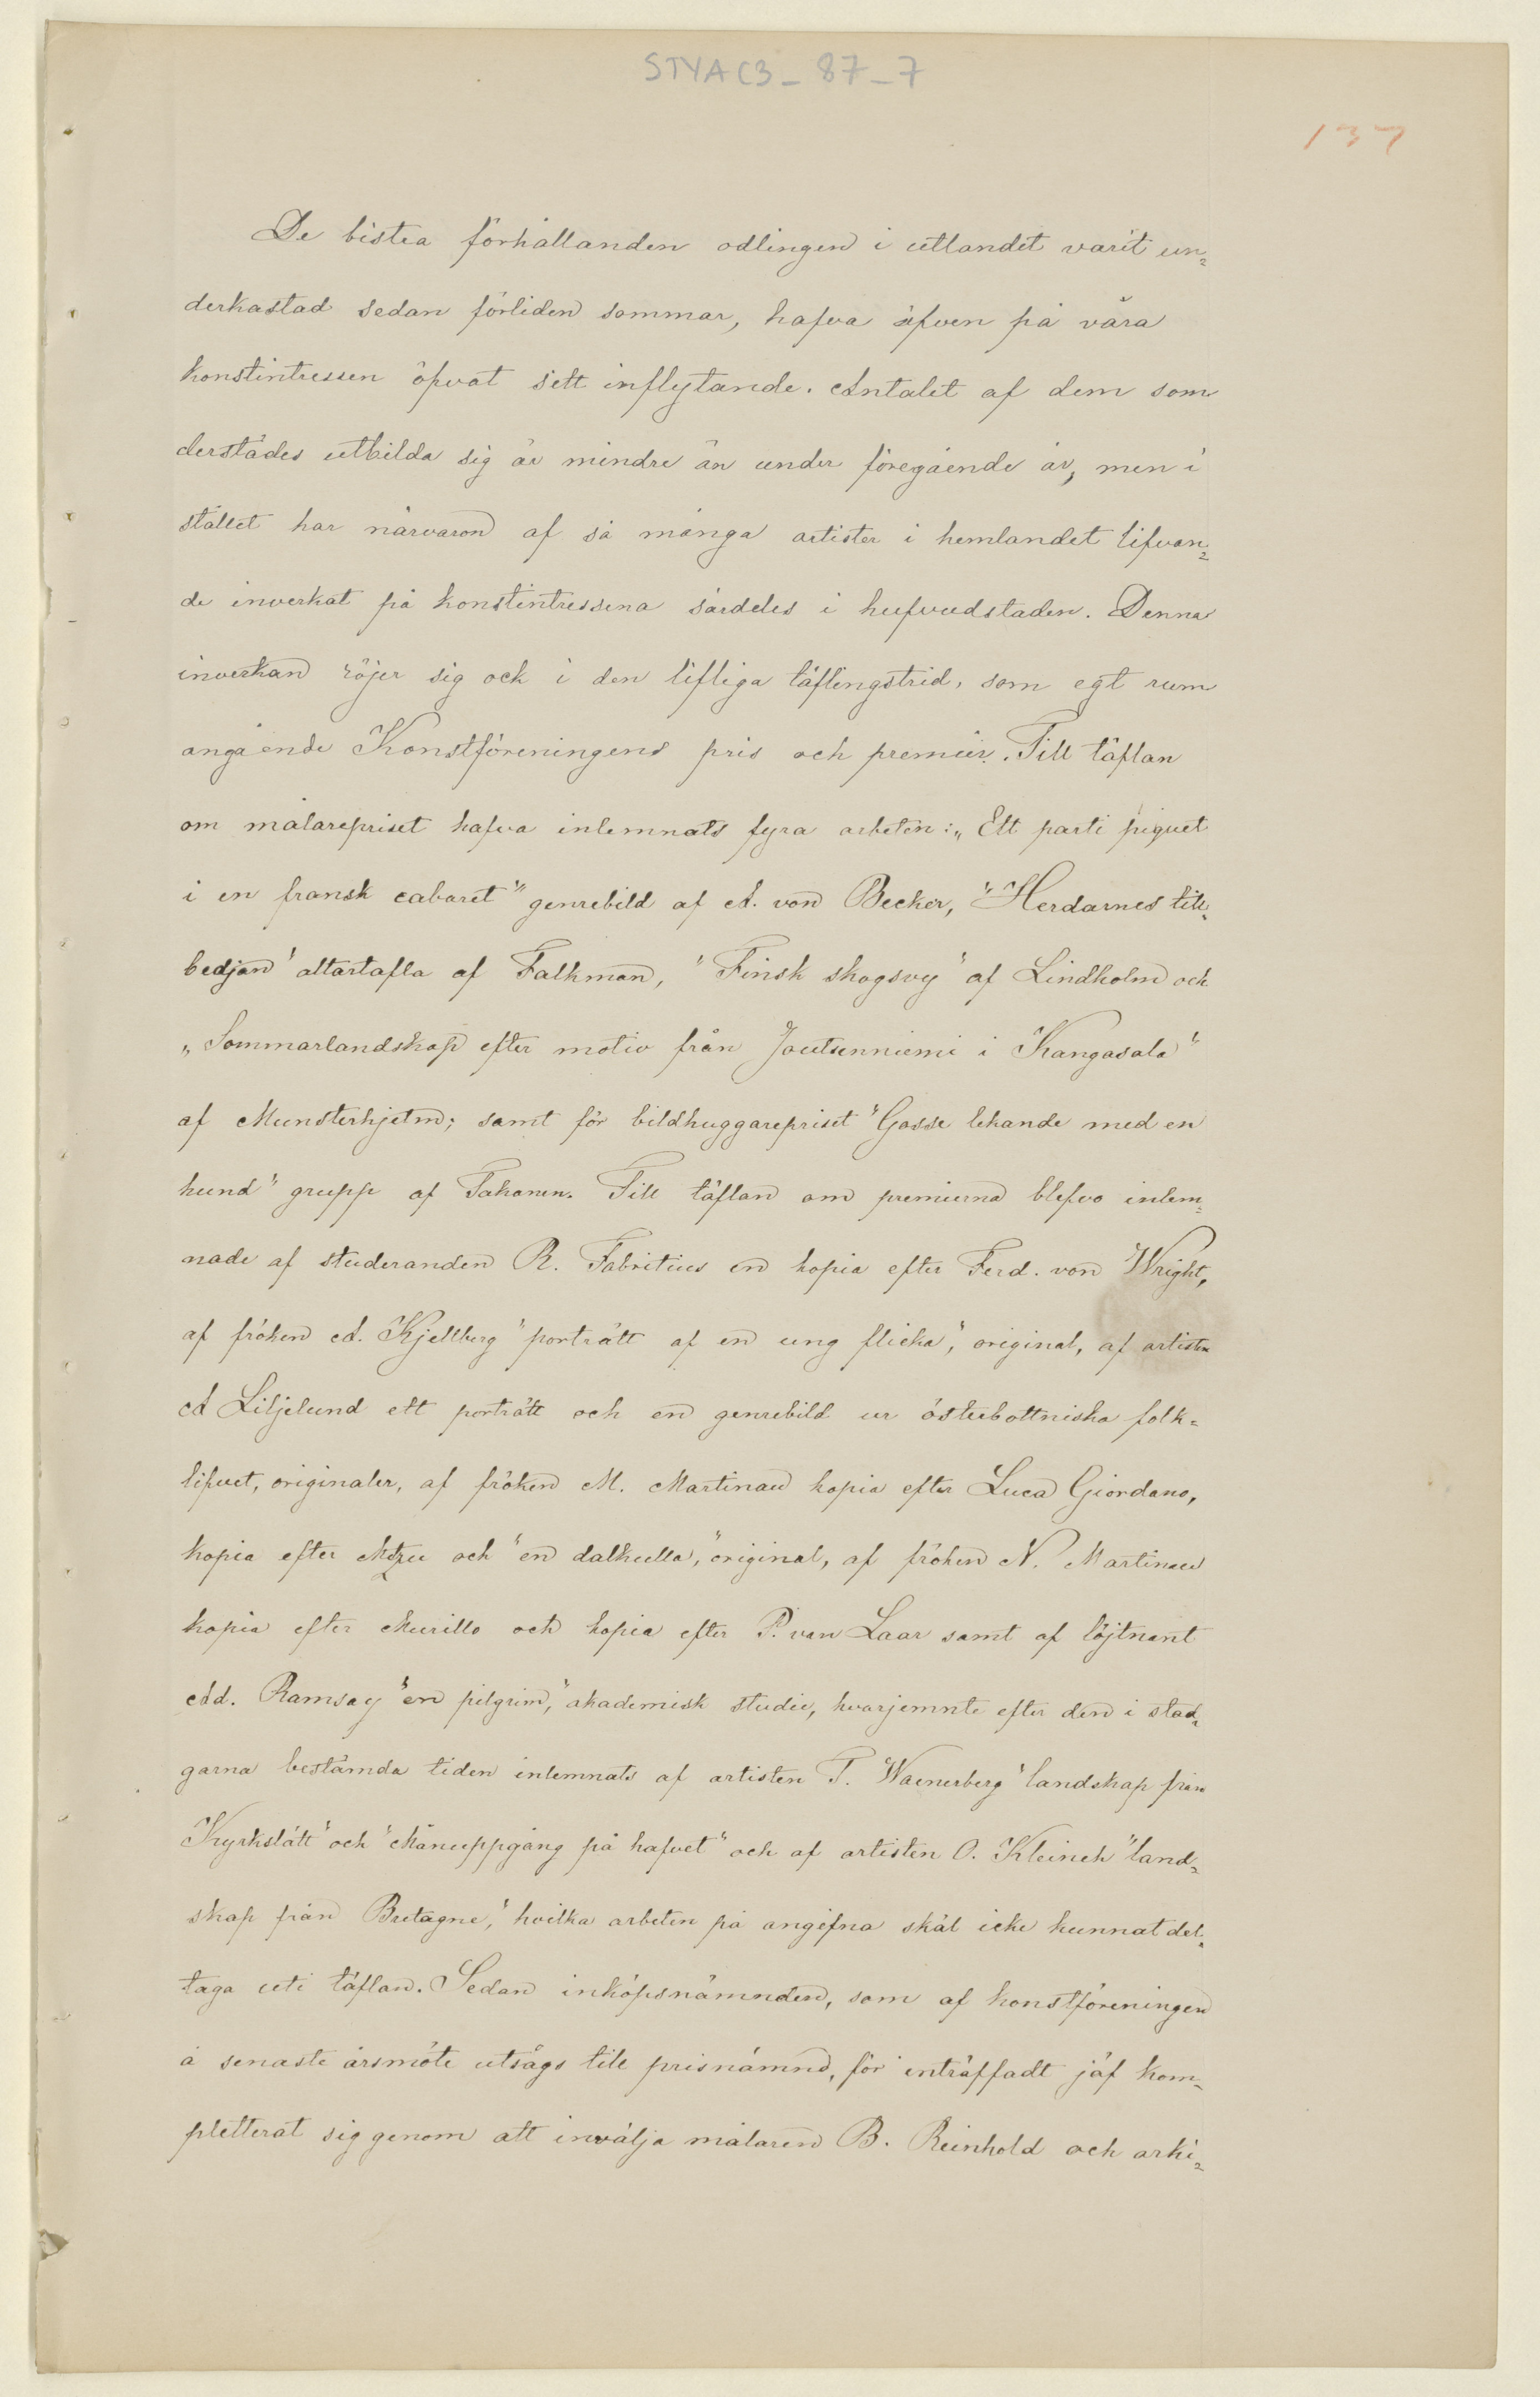 STYA C3_87_7
137
De bistra förhållanden odlingen i utlandet varit un=
derkastad sedan förliden sommar, hafva äfven på våra
konstintressen öfvat sitt inflytande. Antalet af dem som
derstädes utbilda sig är mindre än under föregående år, men i
stället har närvaron af så många artister i hemlandet lifvan=
de inverkat på konstintressena särdeles i hufvudstaden. Denna
inverkan röjer sig ock i den lifliga täflingstrid, som egt rum
angående Konstföreningens pris och premier. Till täflan
om målarepriset hafva inlemnats fyra arbeten: „Ett parti piquet
i en fransk cabaret" genrebild af A. von Becker, "Herdarnes till=
bedjan" altartafla af Falkman, "Finsk skogsvy" af Lindholm och
„Sommarlandskap efter motiv från Joutsenniemi i Kangasala"
af Munsterhjelm; samt för bildhuggarepriset "Gosse lekande med en
hund" grupp af Takanen. Till täflan om premierna blefvo inlem=
nade af studeranden R. Fabritius en kopia efter Ferd. von Wright,
af fröken A. Kjellberg "porträtt af en ung flicka", original, af artisten
A Liljelund ett porträtt och en genrebild ur österbottniska folk=
lifvet, originaler, af fröken M. Martinau kopia efter Luca Giordano,
kopia efter och "en dalkulla," original, af fröken N. Martinau
kopia efter Murillo och kopia efter P. van Laar samt af löjtnant
Ad. Ramsay "en pilgrim," akademisk studie, hvarjemnte efter den i stad=
garna bestämda tiden inlemnats af artisten T. Waenerberg "landskap från
Kyrkslätt" och "Månuppgång på hafvet" och af artisten O. Kleineh "land=
skap från Bretagne," hvilka arbeten på angifna skäl icke kunnat del=
taga uti täflan. Sedan inköpsnämnden, som af konstföreningen
å senaste årsmöte utsågs till prisnämnd, för inträffadt jäf kom=
pletterat sig genom att invälja målaren B. Reinhold och arki=